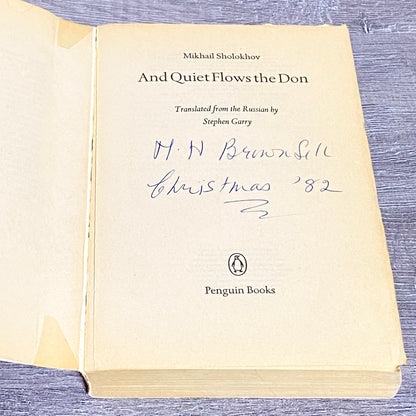 Mikhail Sholokhov
And Quiet Flows the Don
Translated from the Russian by
Stephen Garry
M. H Brownsell
Christmas '82
Penguin Books